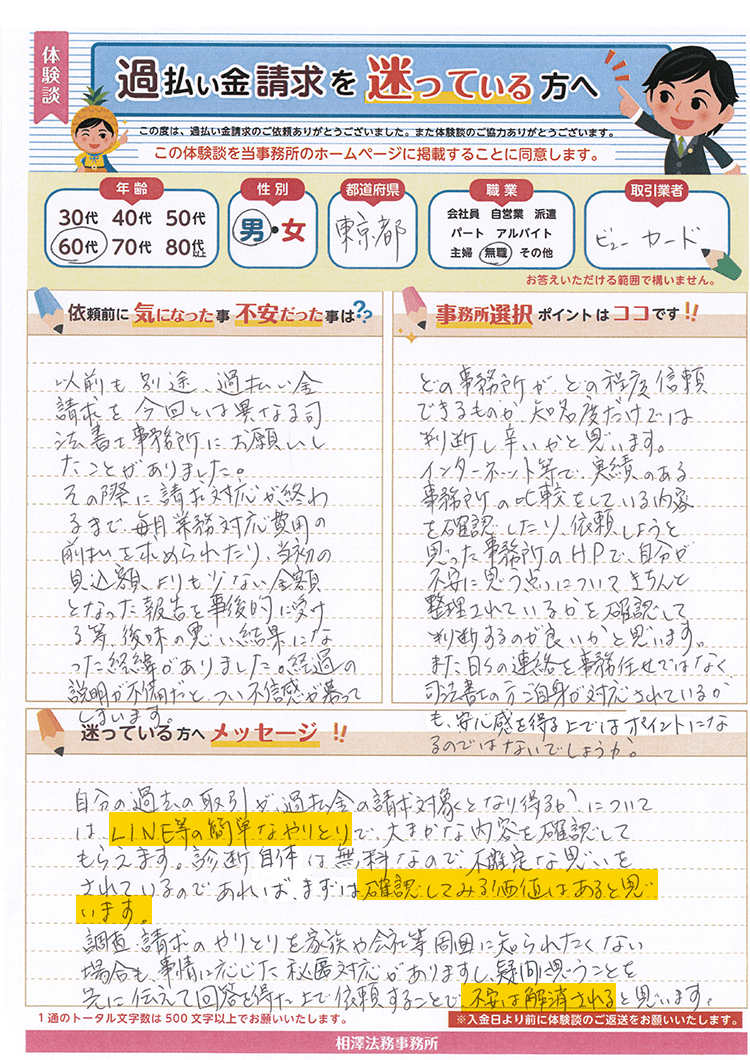 体験談
過払い金請求を迷っている方へ
この度は、過払い金請求のご依頼ありがとうございました。また体験談のご協力ありがとうございます。
この体験談を当事務所のホームページに掲載することに同意します。
年齢
30代 40代 50代
60代 70代 80代以上
性別
男・女
都道府県
東京都
職業
会社員 自営業 派遣
パート アルバイト
主婦 無職 その他
取引業者
ビューカード
お答えいただける範囲で構いません。
依頼前に気になった事 不安だった事は??
以前も別途、過払い金
請求を今回とは異なる司
法書士事務所にお願いし
たことがありました。
その際に請求対応が終わ
るまで毎月業務対応費用の
前払を求められたり、当初の
見込額よりも少ない金額
となった報告を事後的に受け
る等、後味の悪い結果にな
った経緯がありました。経過の
説明が不備だと、つい不信感が募って
しまいます。
事務所選択ポイントはココです!!
どの事務所が、どの程度信頼
できるものか、知名度だけでは
判断し辛いかと思います。
インターネット等で、実績のある
事務所の比較をしている内容
を確認したり、依頼しようと
思った事務所のHPで、自分が
不安に思う点についてきちんと
整理されているかを確認して
判断するのが良いかと思います。
また日々の連絡を事務任せではなく
司法書士の方ご自身が対応されているか
も、安心感を得る上ではポイントにな
るのではないでしょうか。
迷っている方へメッセージ!!
自分の過去の取引が、過払金の請求対象となり得るか?について
は、LINE等の簡単なやりとりで、大まかな内容を確認して
もらえます。診断自体は無料なので、不確定な思いを
されているのであれば、まずは確認してみる価値はあると思
います。
調査、請求のやりとりを家族や会社等周囲に知られたくない
場合も、事情に応じた秘匿対応がありますし、疑問に思うことを
先に伝えて回答を得た上で依頼することで、不安は解消されると思います。
1通のトータル文字数は500文字以上でお願いいたします。
※入金日より前に体験談のご返送をお願いいたします。
相澤法務事務所